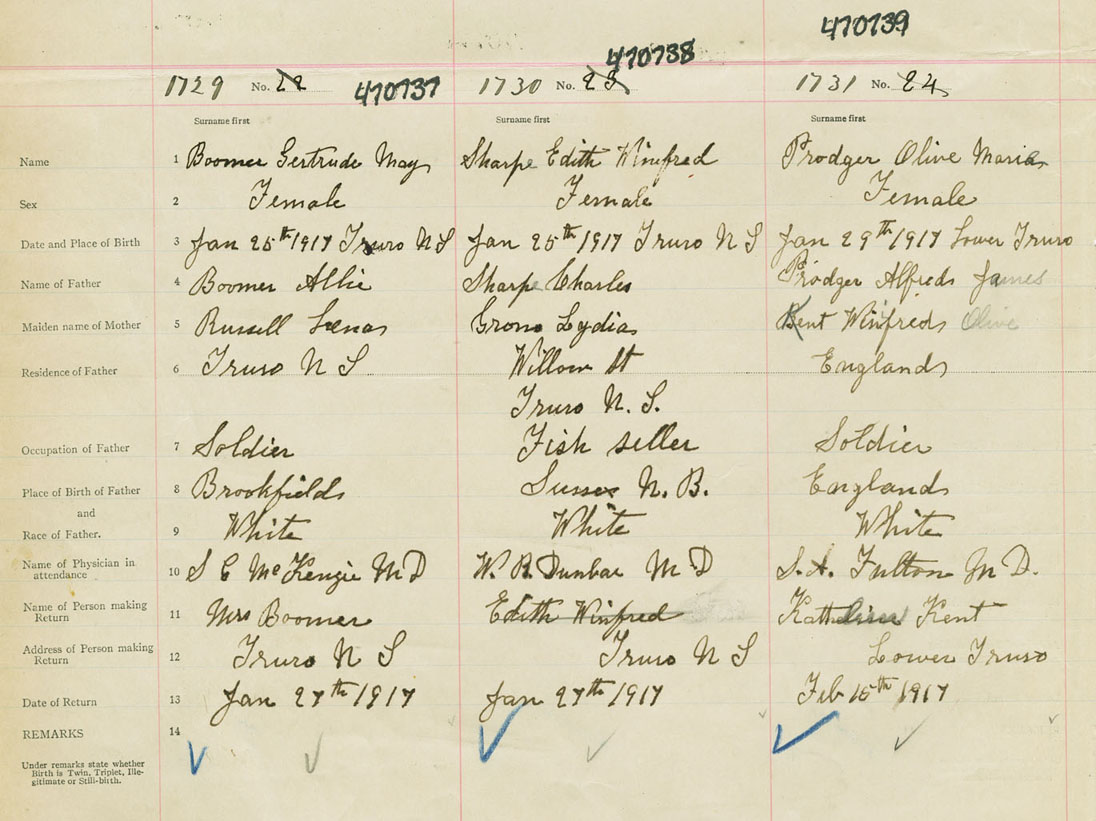 470739
470738
1729 No. 22 470737 1730 No. 23 1731 No. 24
Surname first Surname first Surname first
Name 1 Boomer Gertrude May Sharpe Edith Winifred Prodger Olive Maria
Sex 2 Female Female Female
Date and Place of Birth 3 Jan 25th 1917 Truro N S Jan 25th 1917 Truro N S Jan 29th 1917 Lower Truro
Name of Father 4 Boomer Allie Sharpe Charles Prodger Alfred James
Maiden name of Mother 5 Russell Lena Lydia Kent Winifred Olive
Residence of Father 6 Truro N S Willow St England
Truro N. S.
Occupation of Father 7 Soldier Fish seller Soldier
Place of Birth of Father 8 Brookfield Sussex N. B. England
and
Race of Father. 9 White White White
Name of Physician in
attendance 10 McKenzie M D W. R. Dunbar M D S. A. Fulton M D.
Name of Person making
Return 11 Mrs Boomer Edith Winifred Kent
Address of Person making
Return 12 Truro N S Truro N S Lower Truro
Date of Return 13 Jan 27th 1917 Jan 27th 1917 Feb 1917
REMARKS 14
Under remarks state whether
Birth is Twin, Triplet, Ille-
gitimate or Still-birth.